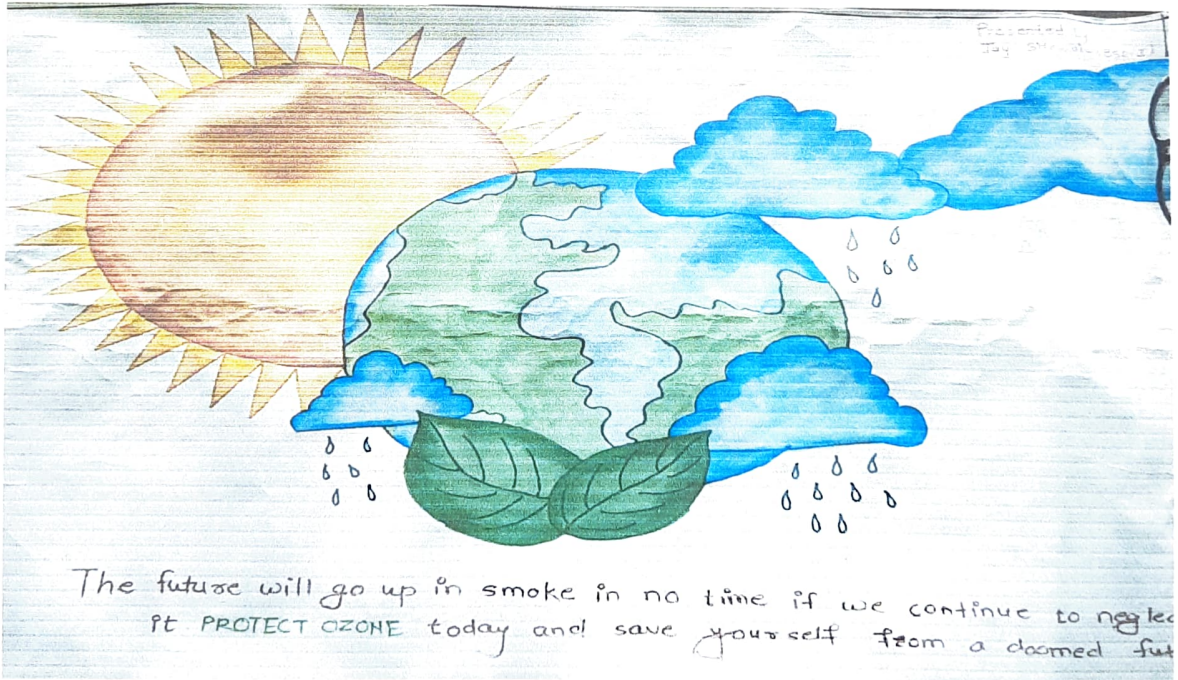 Presented by
Jay
The future will go up in smoke in no time if we continue to neglec
it PROTECT OZONE today and save yourself from a doomed fut